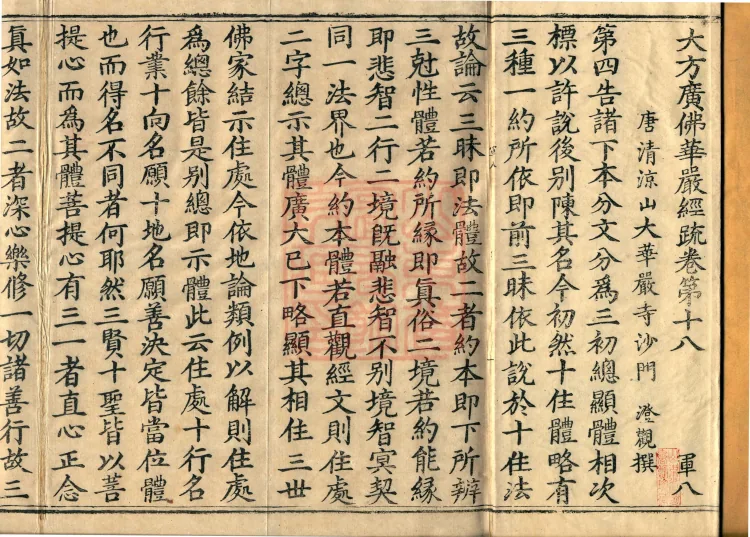 大方廣佛華嚴經疏卷第十八 軍八
唐清涼山大華嚴寺沙門 澄觀撰
第四告諸下本分文分爲三初總顯體相次
標以許說後別陳其名今初然十住體略有
三種一約所依即前三昧依此說於十住法
故論云三昧即法體故二者約本即下所辨
三尅性體若約所緣即眞俗二境若約能緣
即悲智二行二境旣融悲智不別境智冥契
同一法界也今約本體若直觀經文則住處
二字總示其體廣大已下略顯其相住三世
佛家結示住處今依地論類例以解則住處
爲總餘皆是別總即示體此云住處十行名
行業十向名願十地名願善決定皆當位體
也而得名不同者何耶然三賢十聖皆以菩
提心而爲其體菩提心有三一者直心正念
眞如法故二者深心樂修一切諸善行故三